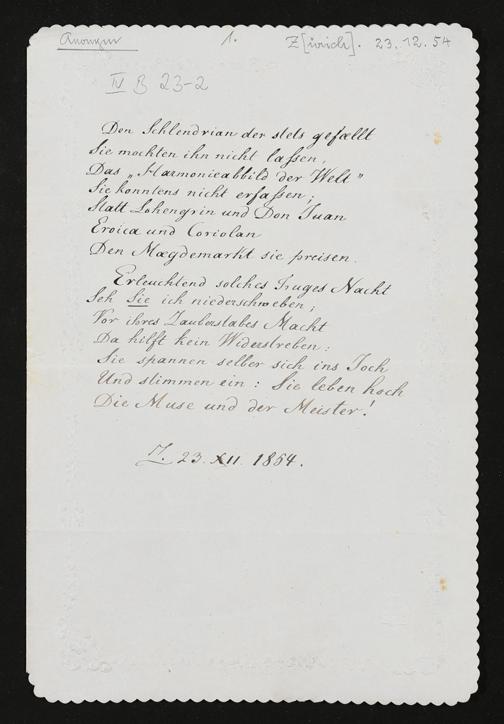 Anonym 1. Z[ürich]. 23.12.54
IV B 23-2
Den Schlendrian der stets gefællt
Sie mochten ihn nicht laßen,
Das „Harmonieabbild der Welt"
Sie konntens nicht erfaßen,
Statt Lohengrin und Don Juan
Eroica und Coriolan
Den Mægdemarkt sie preisen.
Erleuchtend solches Truges Nacht
Seh Sie ich niederschweben;
Vor ihres Zauberstabes Macht
Da hilft kein Widerstreben:
Sie spannen selber sich ins Joch
Und stimmen ein: Sie leben hoch
Die Muse und der Meister!
Z. 23. XII. 1854.